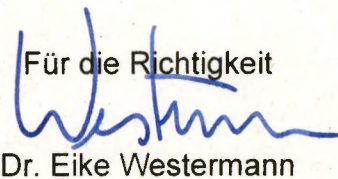 Für die Richtigkeit
Westerm
Dr. Eike Westermann